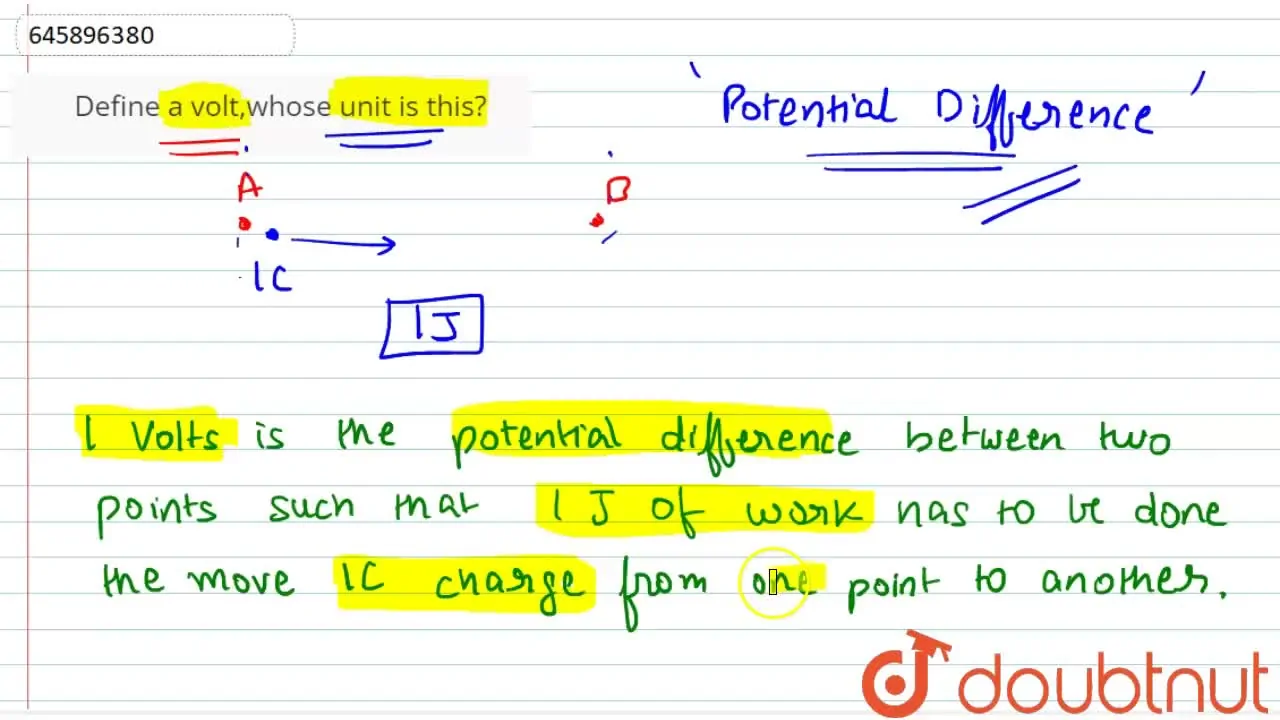 645896380
Define a volt,whose unit is this?
'Potential Difference'
A
B
1C
1J
1 Volts is the potential difference between two
points such that 1 J of work has to be done
the move 1C charge from one point to another.
doubtnut